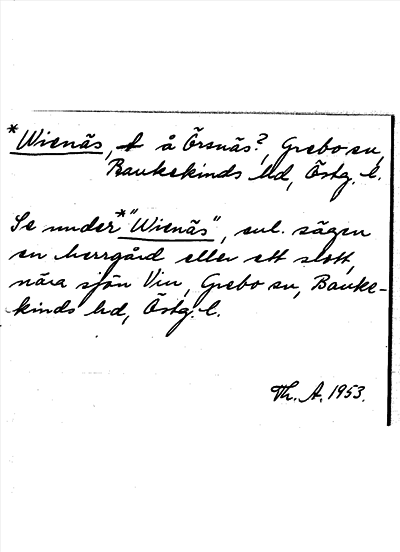 *Wienäs, t å Örsnäs?, Grebo sn,
Bankekinds hd, Östg. l.
Se under *"Wienäs", enl. sägen
en herrgård eller ett slott,
nära sjön Vin, Grebo sn, Banke-
kinds hd, Östg. l.
Th. A. 1953.